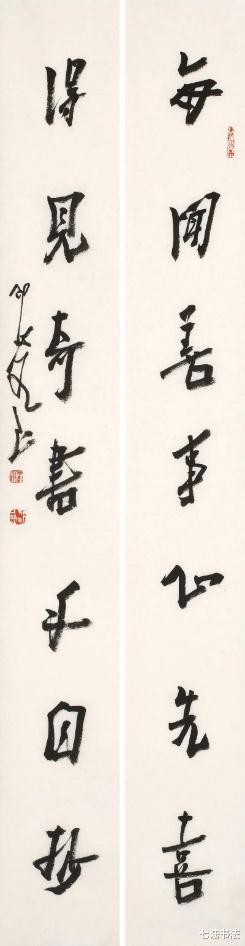 每闻善事心先喜
得见奇书手自抄
七海书法